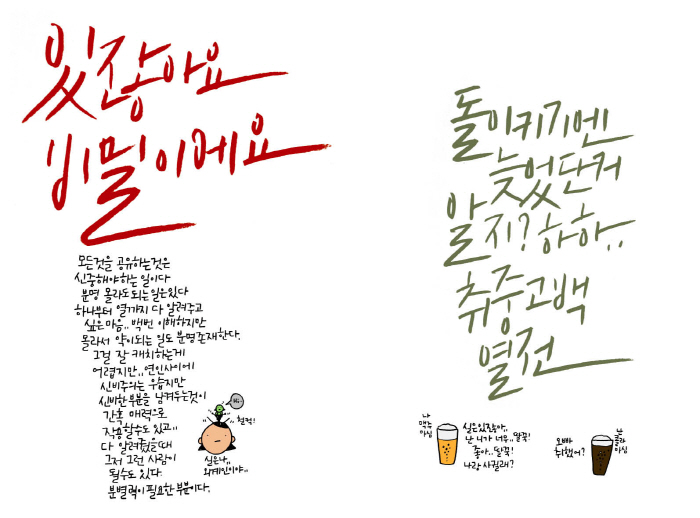 있잖아요
비밀이에요
모든것을 공유하는것은
신중해야하는 일이다
분명 몰라도되는일은있다
하나부터 열까지 다 알려주고
싶은마음.. 백번 이해하지만
몰라서 약이되는 일도 분명존재한다.
그걸 잘 캐치하는게
어렵지만.. 연인사이에
신비주의는 우습지만
신비한부분을 남겨두는것이
간혹 매력으로
작용할수도 있고..
다 알려줬을때
그저 그런 사람이
될수도 있다.
분별력이 필요한 부분이다.
Hi
헐퀴!
실은나..
외계인이야..
돌이키기엔
늦었단거
알지? 하하..
취중고백
열전
나
맥주
마심
실은있잖아..
난 니가 너무..딸꾹!
좋아..딸꾹!
나랑 사귈래?
오빠
취했어?
난
콜라
마심